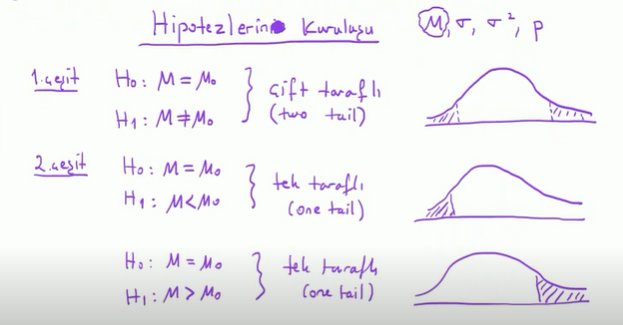 Hipotezlerin Kuruluşu
μ, σ, σ², p
1.çeşit
H₀: μ = μ₀
H₁: μ ≠ μ₀
çift taraflı
(two tail)
2.çeşit
H₀: μ = μ₀
H₁: μ < μ₀
tek taraflı
(one tail)
H₀: μ = μ₀
H₁: μ > μ₀
tek taraflı
(one tail)